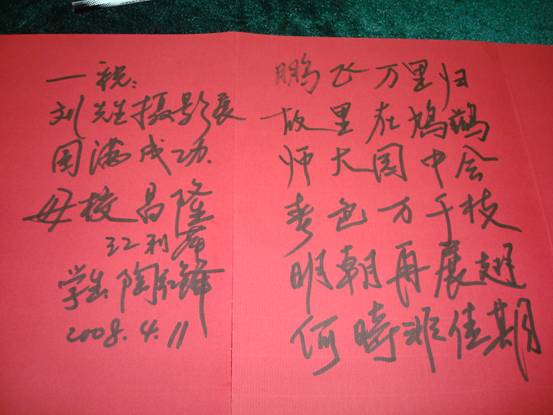 一祝:
刘先生摄影展
圆满成功.
母校昌隆
江利
学生 陶红锋
2008.4.11
鹏飞万里归
故里在鸠鹚
师大园中会
春色万千枝
明朝再展翅
何时非佳期